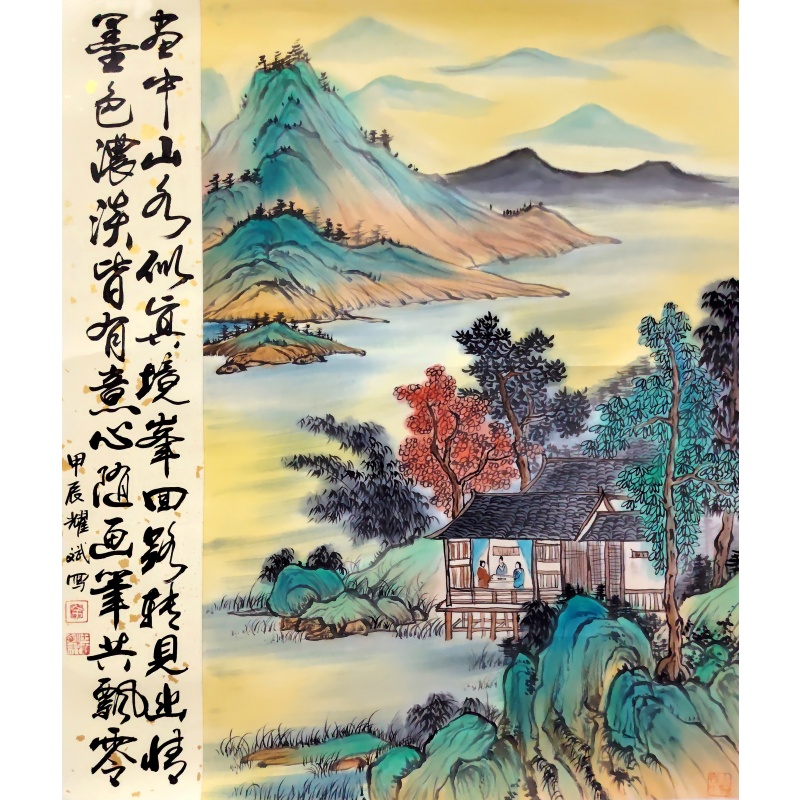 画中山水似真境峰回路转见幽情
墨色濃淡皆有意心随画筆共飘零
甲辰耀斌写